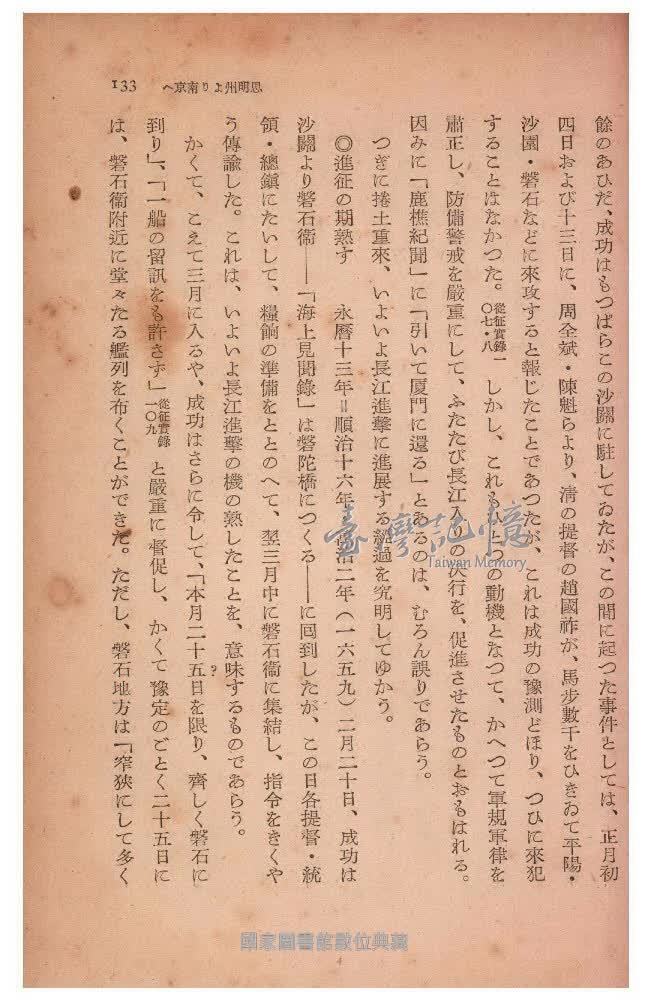 133　思明州より南京へ
餘のあひだ、成功はもつぱらこの沙關に駐してゐたが、この間に起つた事件としては、正月初
四日および十三日に、周全斌・陳魁らより、淸の提督の趙國祚が、馬步數千をひきゐて平陽・
沙園・磐石などに來攻すると報じたことであつたが、これは成功の豫測どほり、つひに來犯
することはなかつた。從征實錄一〇七・八　しかし、これもひとつの動機となつて、かへつて軍規軍律を
肅正し、防備警戒を嚴重にして、ふたたび長江入りの決行を、促進させたものとおもはれる。
因みに「鹿樵紀聞」に「引いて厦門に還る」とあるのは、むろん誤りであらう。
つぎに捲土重來、いよいよ長江進擊に進展する經過を究明してゆかう。
◎進征の期熟す　永曆十三年＝順治十六年二年（一六五九）二月二十日、成功は
沙關より磐石衞――「海上見聞錄」は磐陀橋につくる――に囘到したが、この日各提督・統
領・總鎭にたいして、糧餉の準備をととのへて、翌三月中に磐石衞に集結し、指令をきくや
う傳諭した。これは、いよいよ長江進擊の機の熟したことを、意味するものであらう。
かくて、こえて三月に入るや、成功はさらに令して、「本月二十五日を限り、齊しく磐石に
到り」、「一船の留訊をも許さず」從征實錄一〇九　と嚴重に督促し、かくて豫定のごとく二十五日に
は、磐石衞附近に堂々たる艦列を布くことができた。ただし、磐石地方は「窄狹にして多く
臺灣記憶
Taiwan Memory
國家圖書館數位典藏